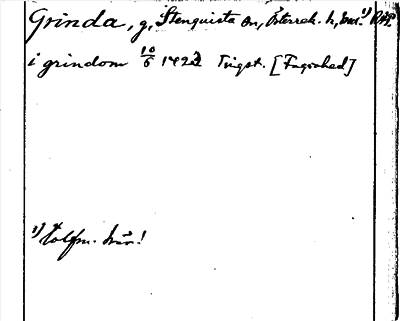 Grinda, g, Stenquista sn, Österrek. h, Srml.¹) RAP.
i grindom 10/6 1422 Tingst. [Fagrahed]
¹) Tolfm. här!